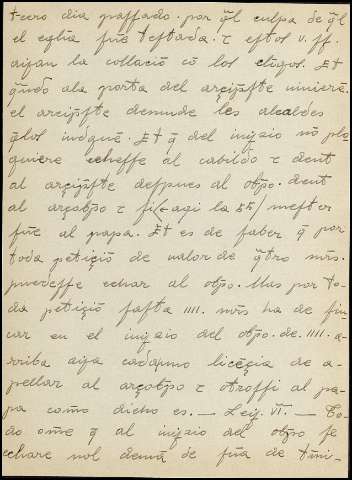 tecero dia passado. por q̃l culpa de q̃l
el eglia fue testada. τ estos v. ff.
ayan la collació cõ los cligos. Et
qñdo ala porta del arçip̃ste uinierẽ.
el arcip̃ste demude les alcaldes
q̃los inoguẽ. Et q̃ del iuyzio nõ plo
quiere echesse al cabildo τ dent
al arçip̃ste despues al obp̃o. dent
al arçobp̃o τ si agi la mester
fuẽ al papa. Et es de saber q̃ por
toda petiçió de ualor de q̃tro mr̃s.
puedesse echar al obp̃o. Mas por to-
da petiçió fasta IIII. mr̃s ha de fin-
car en el iuyzio del obp̃o. de .IIII. a-
rriba aya cadaúno liceçia de a-
pellar al arçobp̃o τ otrossi al pa-
pa como dicho es. — Leij. VI. — To-
do om̃e q̃ al iuyzio del obp̃o se
echare nol demã de fũa de t̃mi-